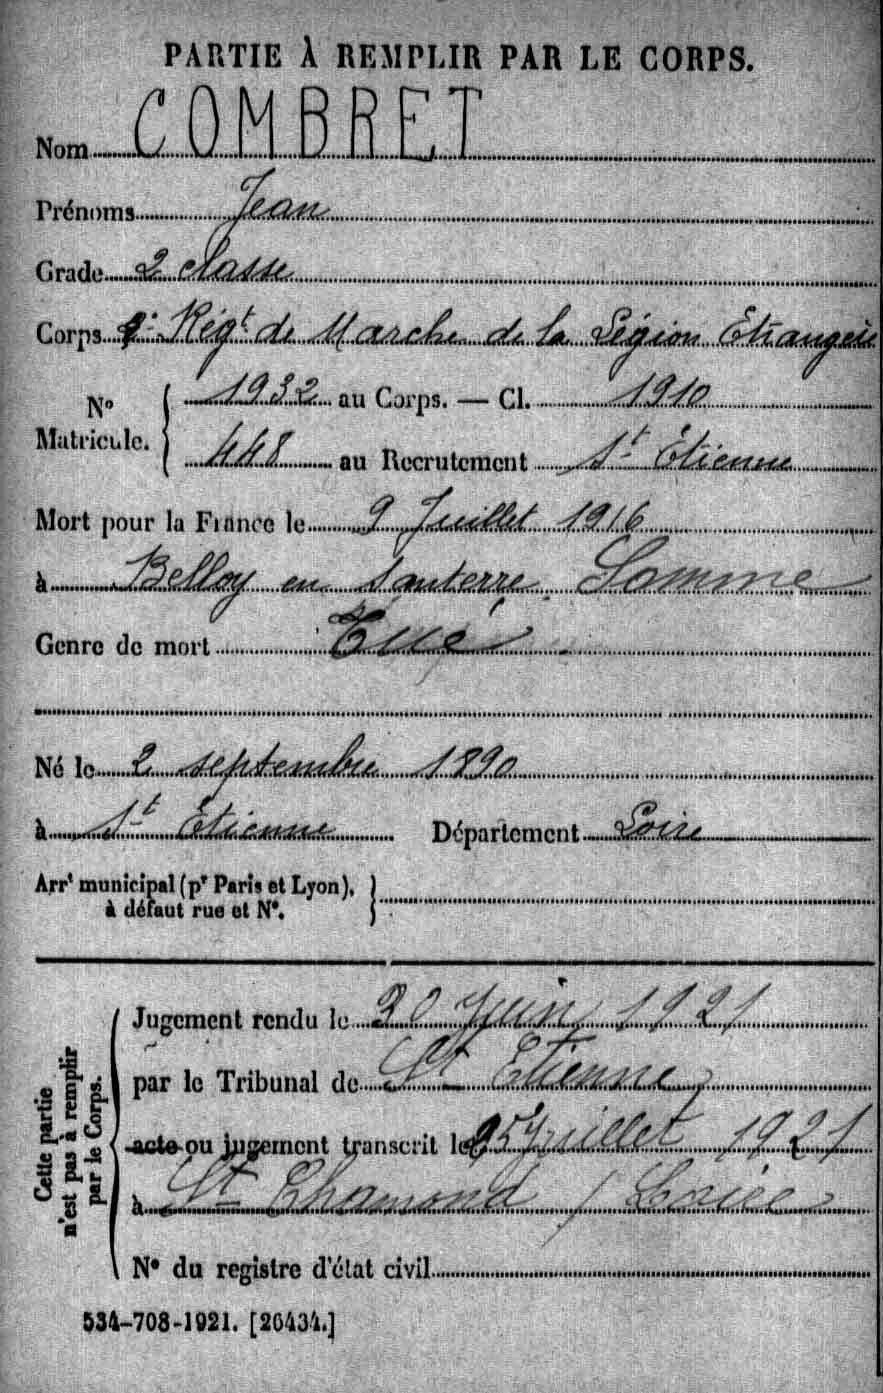 PARTIE À REMPLIR PAR LE CORPS.
Nom COMBRET
Prénoms Jean
Grade 2 classe
Corps Régt de Marche de la Légion Etrangère
No Matricule. 1932 au Corps. — Cl. 1910
448 au Recrutement St Étienne
Mort pour la France le 9 Juillet 1916
à Belloy en Santerre Somme
Genre de mort Tué
Né le 2 septembre 1890
à St Étienne Département Loire
Arrt municipal (pr Paris et Lyon),
à défaut rue et N°.
Cette partie n'est pas à remplir par le Corps.
Jugement rendu le 30 Juin 1921
par le Tribunal de St Etienne
acte ou jugement transcrit le 25 Juillet 1921
à St Chamond / Loire
N° du registre d'état civil
534-708-1921. [26434.]